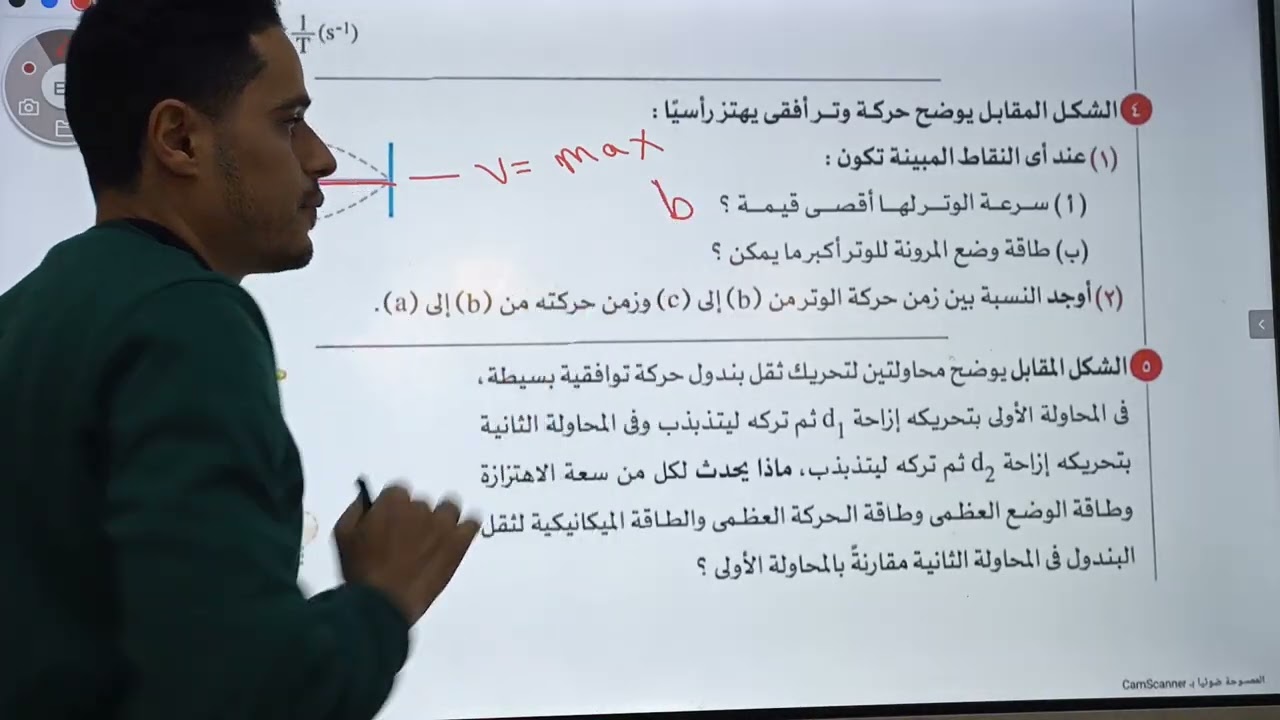 1/T (s⁻¹)
٤ الشكل المقابل يوضح حركة وتر أفقى يهتز رأسيًا :
(١) عند أى النقاط المبينة تكون :
v = max
(أ) سرعة الوتر لها أقصى قيمة ؟
b
(ب) طاقة وضع المرونة للوتر أكبر ما يمكن ؟
(٢) أوجد النسبة بين زمن حركة الوتر من (b) إلى (c) وزمن حركته من (b) إلى (a).
٥ الشكل المقابل يوضح محاولتين لتحريك ثقل بندول حركة توافقية بسيطة،
فى المحاولة الأولى بتحريكه إزاحة d₁ ثم تركه ليتذبذب وفى المحاولة الثانية
بتحريكه إزاحة d₂ ثم تركه ليتذبذب، ماذا يحدث لكل من سعة الاهتزازة
وطاقة الوضع العظمى وطاقة الحركة العظمى والطاقة الميكانيكية لثقل
البندول فى المحاولة الثانية مقارنةً بالمحاولة الأولى ؟
الممسوحة ضوئيا بـ CamScanner